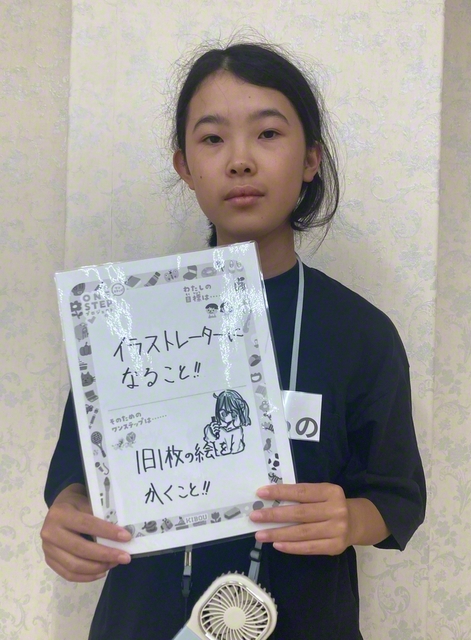 ONE
STEP
わたしの
目標は……
イラストレーターに
なること!!
そのための
ワンステップは……
1日1枚の絵を
かくこと!!
KIBOU
の